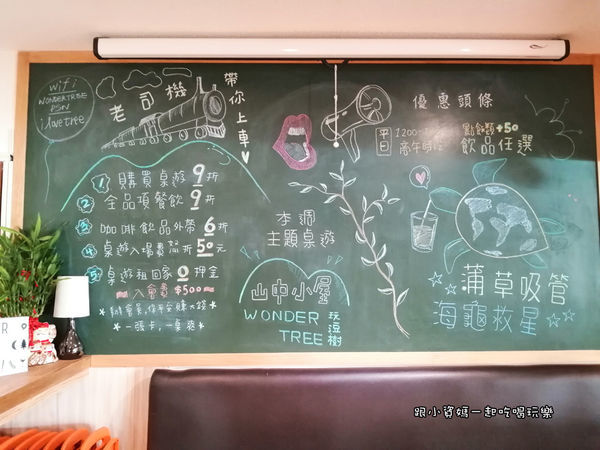 wifi
WONDERTREE
PSN
ilovetree
老司機
帶你上車
① 購買桌遊 9折
② 全品項餐飲 9折
③ 咖啡飲品外帶 6折
④ 桌遊入場費 折50元
⑤ 桌遊租回家 0押金
入會費 $500
一張卡,一桌
本週
主題桌遊
山中小屋
WONDER
TREE
玩逗樹
優惠頭條
平日
點餐類+50
飲品任選
蒲草吸管
海龜救星
跟小資媽一起吃喝玩樂